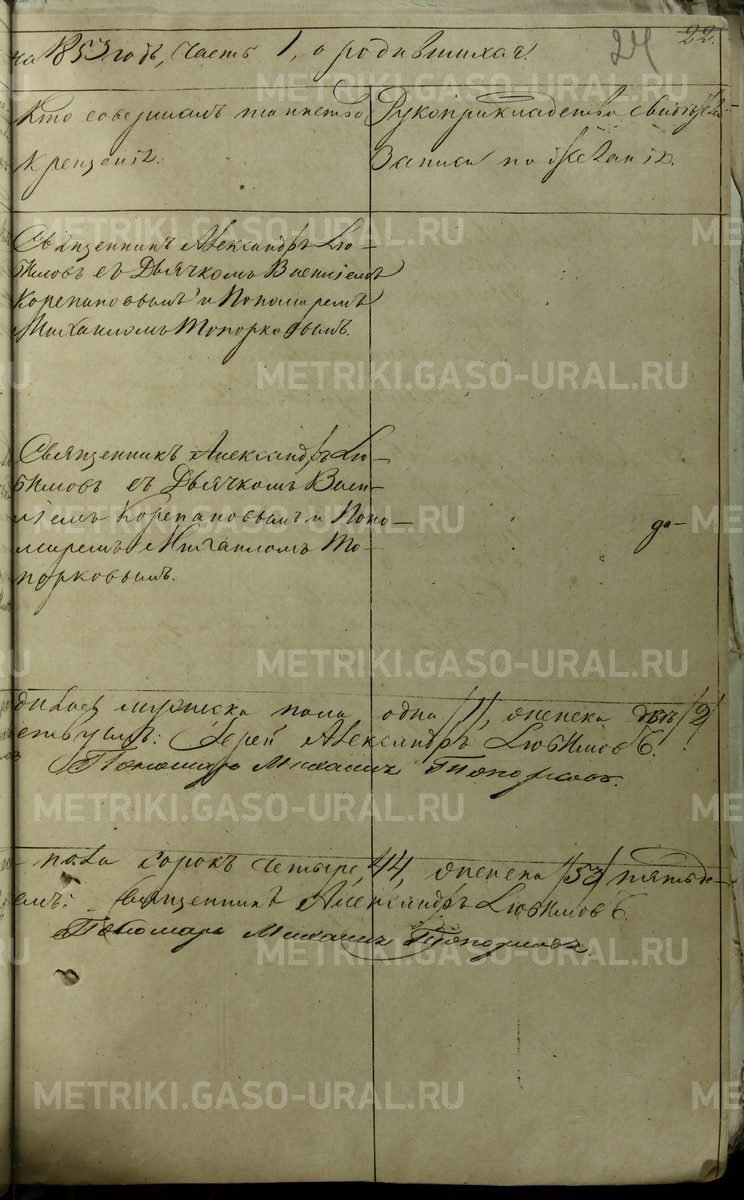 22.
24
на 1853 годъ, часть 1, о родившихся.
Кто совершалъ таинство
крещенія.
Рукоприкладство свидѣ
записи по желанію.
Священникъ Александръ Лю-
бимовъ съ Дьячкомъ Василіемъ
Корепановымъ и Пономаремъ
Михаиломъ Топорковымъ.
Священникъ Александръ Лю-
бимовъ съ Дьячкомъ Васи-
ліемъ Корепановымъ и Поно-
маремъ Михаиломъ То-
порковымъ.
до-
мужеска пола одна /1/, женска двѣ /2/
Іерей Александръ Любимовъ.
Пономарь Михаилъ Топорковъ.
пола сорокъ четыре, 44, женска /53/ пятьде-
Священникъ Александръ Любимовъ.
Пономарь Михаилъ Топорковъ.
METRIKI.GASO-URAL.RU